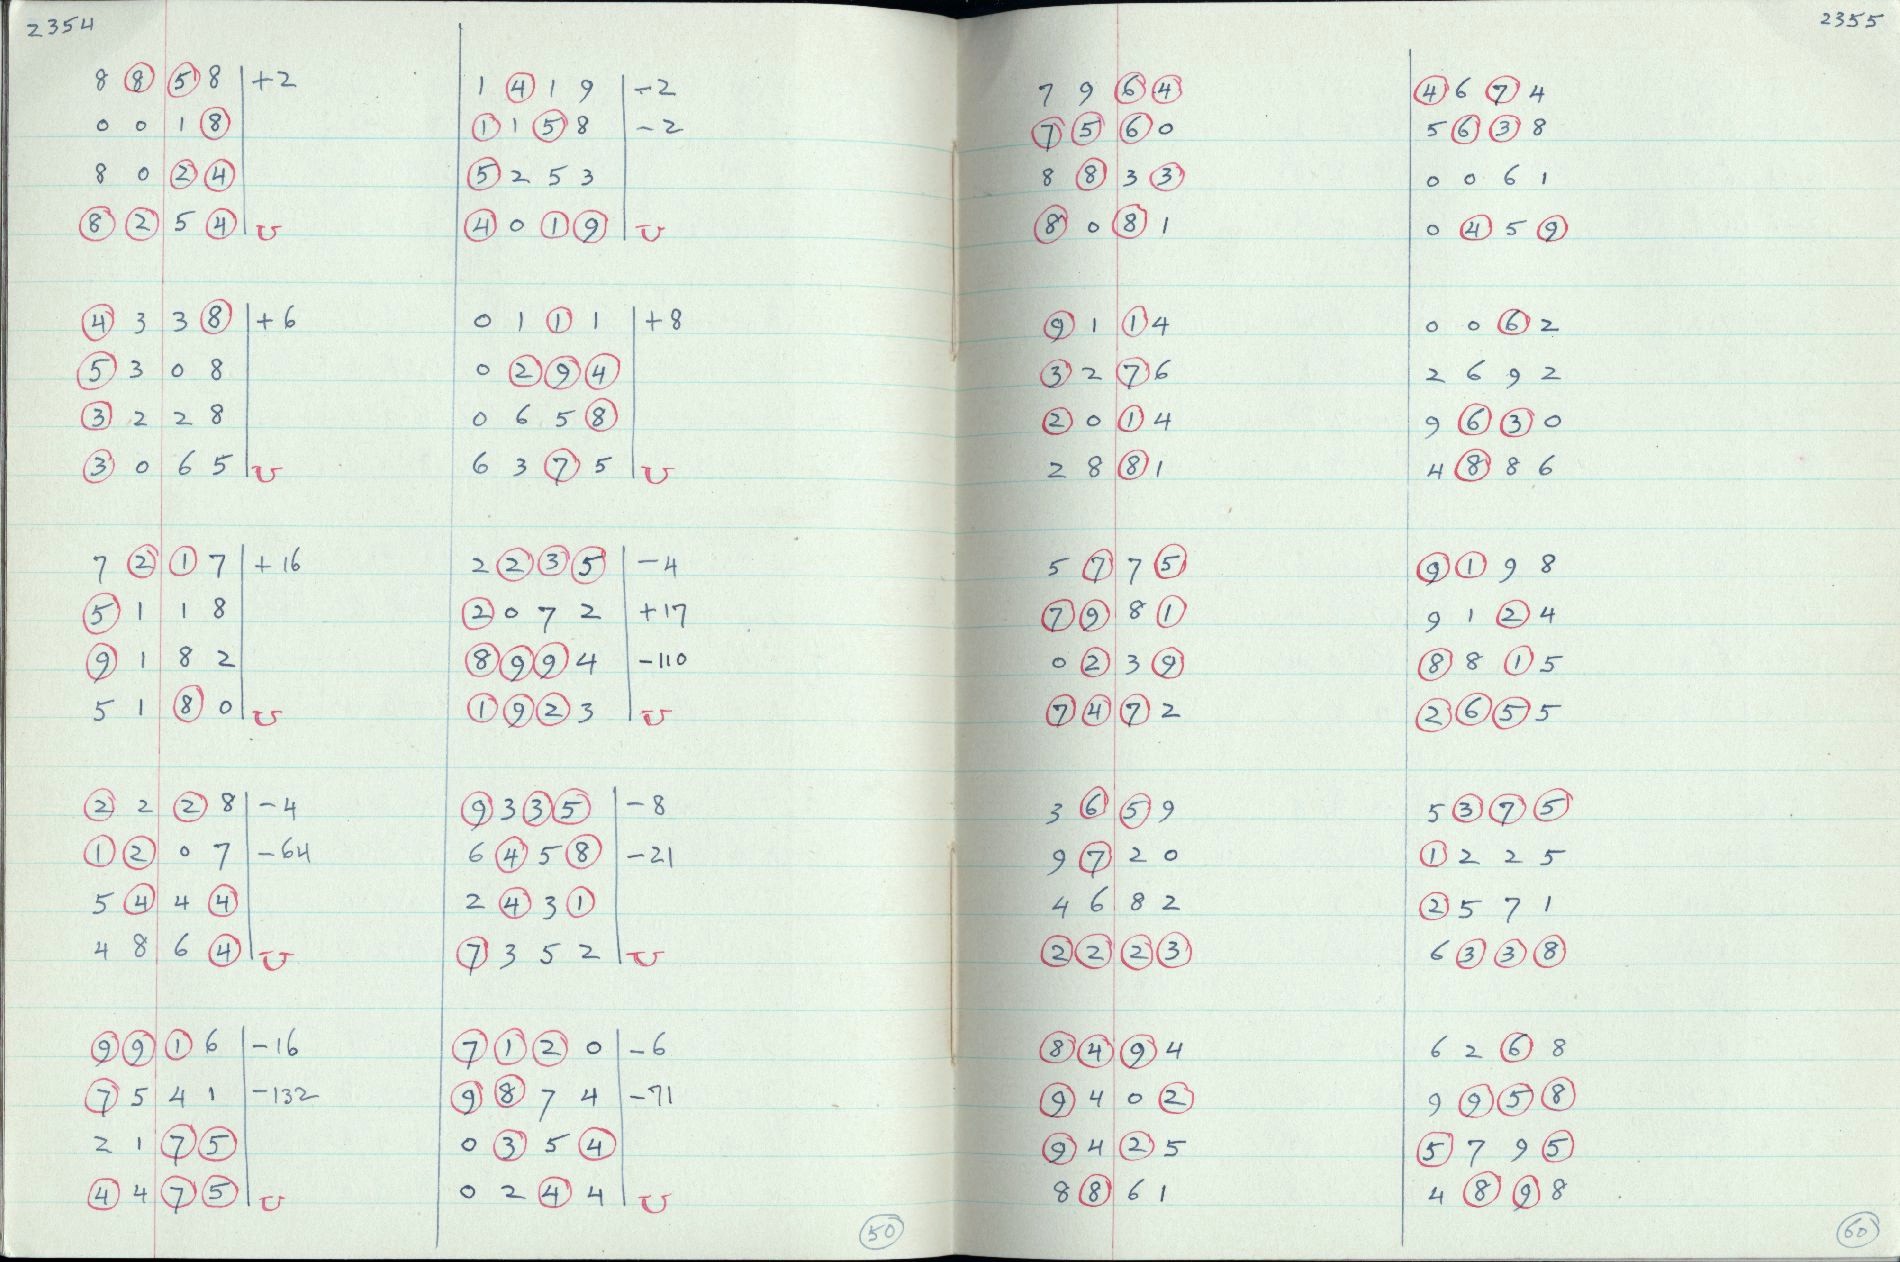 2354
8 8 5 8 +2
0 0 1 8
8 0 2 4
8 2 5 4
4 3 3 8 +6
5 3 0 8
3 2 2 8
3 0 6 5
7 2 1 7 +16
5 1 1 8
9 1 8 2
5 1 8 0
2 2 2 8 -4
1 2 0 7 -64
5 4 4 4
4 8 6 4
9 9 1 6 -16
7 5 4 1 -132
2 1 7 5
4 4 7 5
1 4 1 9 -2
1 1 5 8 -2
5 2 5 3
4 0 1 9
0 1 1 1 +8
0 2 9 4
0 6 5 8
6 3 7 5
2 2 3 5 -4
2 0 7 2 +17
8 9 9 4 -110
1 9 2 3
9 3 3 5 -8
6 4 5 8 -21
2 4 3 1
7 3 5 2
7 1 2 0 -6
9 8 7 4 -71
0 3 5 4
0 2 4 4
50
2355
7 9 6 4
7 5 6 0
8 8 3 3
8 0 8 1
9 1 1 4
3 2 7 6
2 0 1 4
2 8 8 1
5 7 7 5
7 9 8 1
0 2 3 9
7 4 7 2
3 6 5 9
9 7 2 0
4 6 8 2
2 2 2 3
8 4 9 4
9 4 0 2
9 4 2 5
8 8 6 1
4 6 7 4
5 6 3 8
0 0 6 1
0 4 5 9
0 0 6 2
2 6 9 2
9 6 3 0
4 8 8 6
9 1 9 8
9 1 2 4
8 8 1 5
2 6 5 5
5 3 7 5
1 2 2 5
2 5 7 1
6 3 3 8
6 2 6 8
9 9 5 8
5 7 9 5
4 8 9 8
60